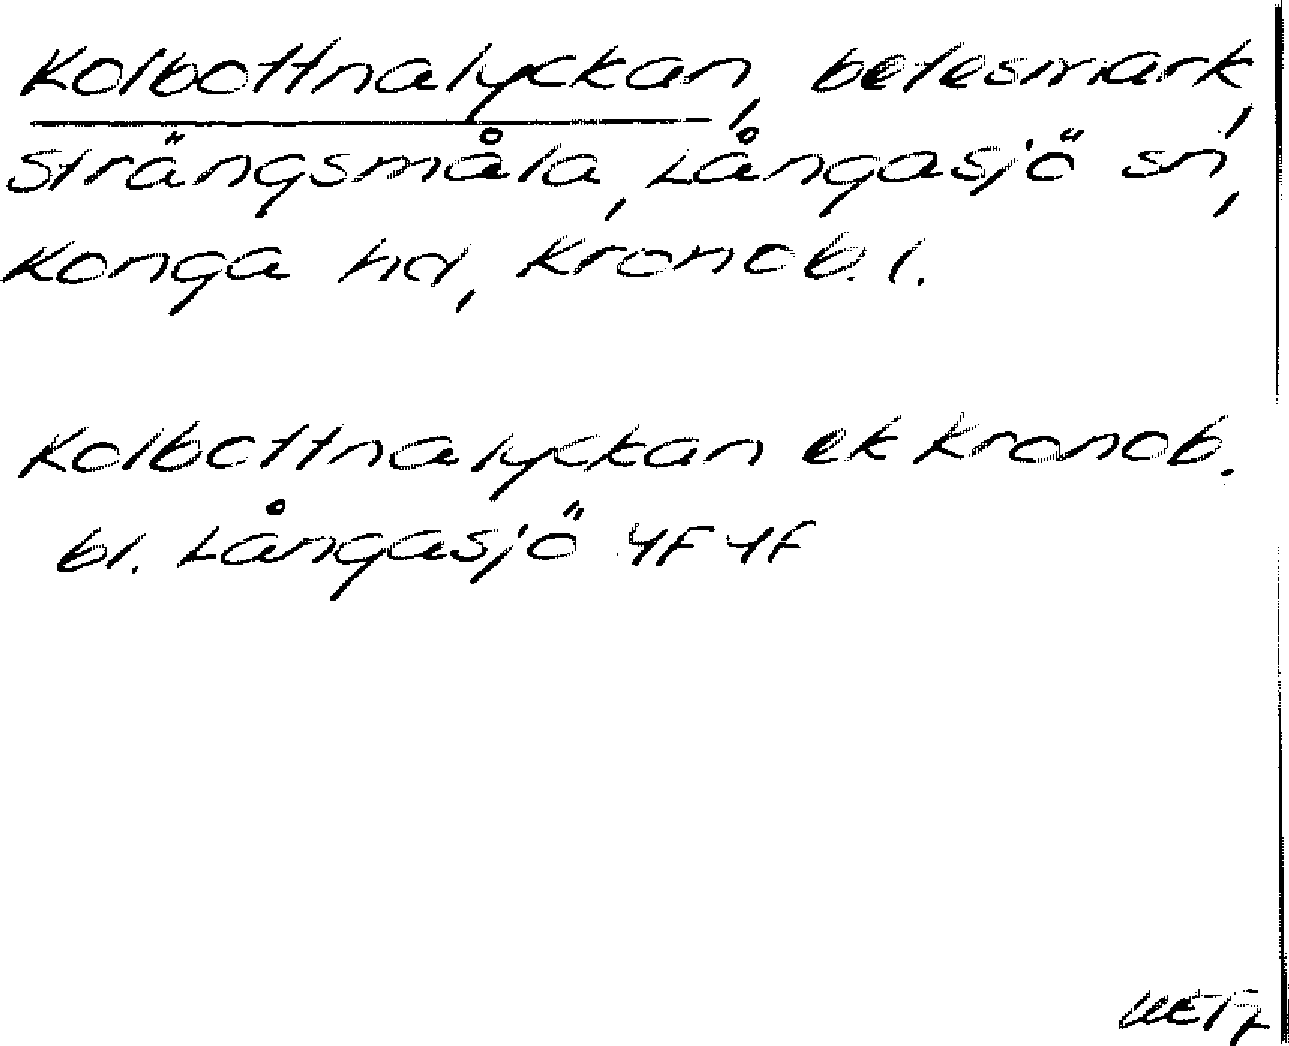 Kolbottnalyckan, betesmark,
Strängsmåla, Långasjö sn,
Konga hd, Kronob. l.
Kolbottnalyckan ek Kronob.
bl. Långasjö 4F 4f